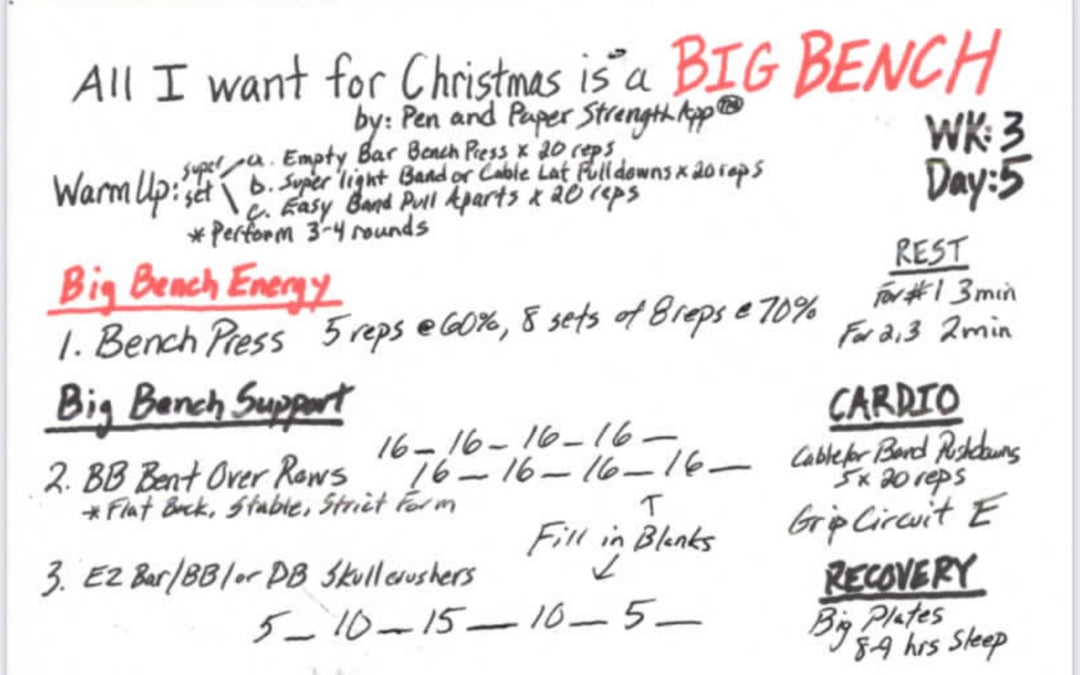 All I want for Christmas is a BIG BENCH
by: Pen and Paper Strength App TM
WK: 3
Day: 5
Warm Up: super set
a. Empty Bar Bench Press x 20 reps
b. Super light Band or Cable Lat Pulldowns x 20 reps
c. Easy Band Pull Aparts x 20 reps
* Perform 3-4 rounds
REST
For #1 3min
For 2,3 2min
Big Bench Energy
1. Bench Press 5 reps @ 60%, 8 sets of 8 reps @ 70%
Big Bench Support
2. BB Bent Over Rows 16_16_16_16_
16_16_16_16_
* Flat Back, Stable, Strict Form
↑
Fill in Blanks
↙
3. EZ Bar/BB/or DB Skullcrushers
5_10_15_10_5_
CARDIO
Cable/or Band Pushdowns
5x 20 reps
Grip Circuit E
RECOVERY
Big Plates
8-9 hrs Sleep